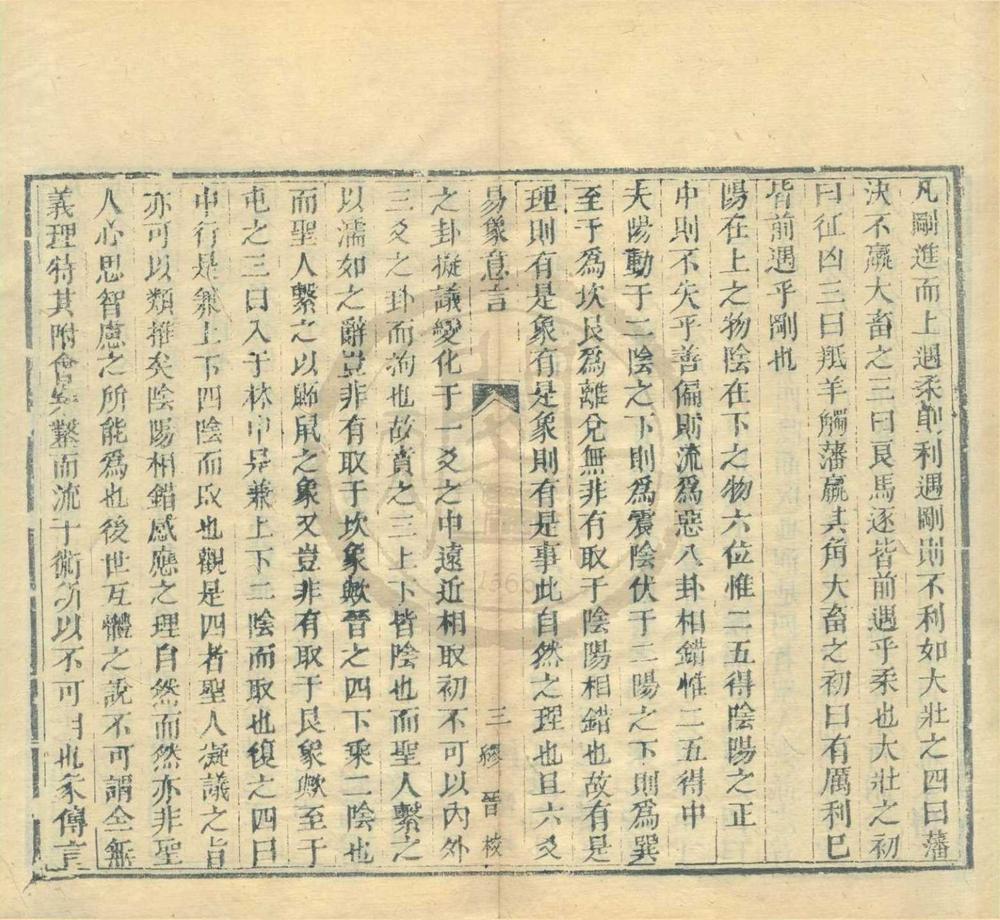 凡剛進而上遇柔則利遇剛則不利如大壯之四曰藩
決不羸大畜之三曰良馬逐皆前遇乎柔也大壯之初
曰征凶三曰羝羊觸藩羸其角大畜之初曰有厲利巳
皆前遇乎剛也
陽在上之物陰在下之物六位惟二五得陰陽之正
中則不失乎善偏則流爲惡八卦相錯惟二五得中
夫陽動于二陰之下則爲震陰伏于二陽之下則爲巽
至于爲坎艮爲離兌無非有取于陰陽相錯也故有是
理則有是象有是象則有是事此自然之理也且六爻
易象意言
三
繆晉校
之卦擬議變化于一爻之中遠近相取初不可以內外
三爻之卦而拘也故賁之三上下皆陰也而聖人繫之
以濡如之辭豈非有取于坎象歟晉之四下乘二陰也
而聖人繫之以鼫鼠之象又豈非有取于艮象歟至于
屯之三曰入于林中是兼上下三陰而取也復之四曰
中行是兼上下四陰而取也觀是四者聖人凝議之旨
亦可以類推矣陰陽相錯感應之理自然而然亦非聖
人心思智慮之所能爲也後世互體之說不可謂全無
義理特其附會穿鑿而流于術所以不可用也彖傳言